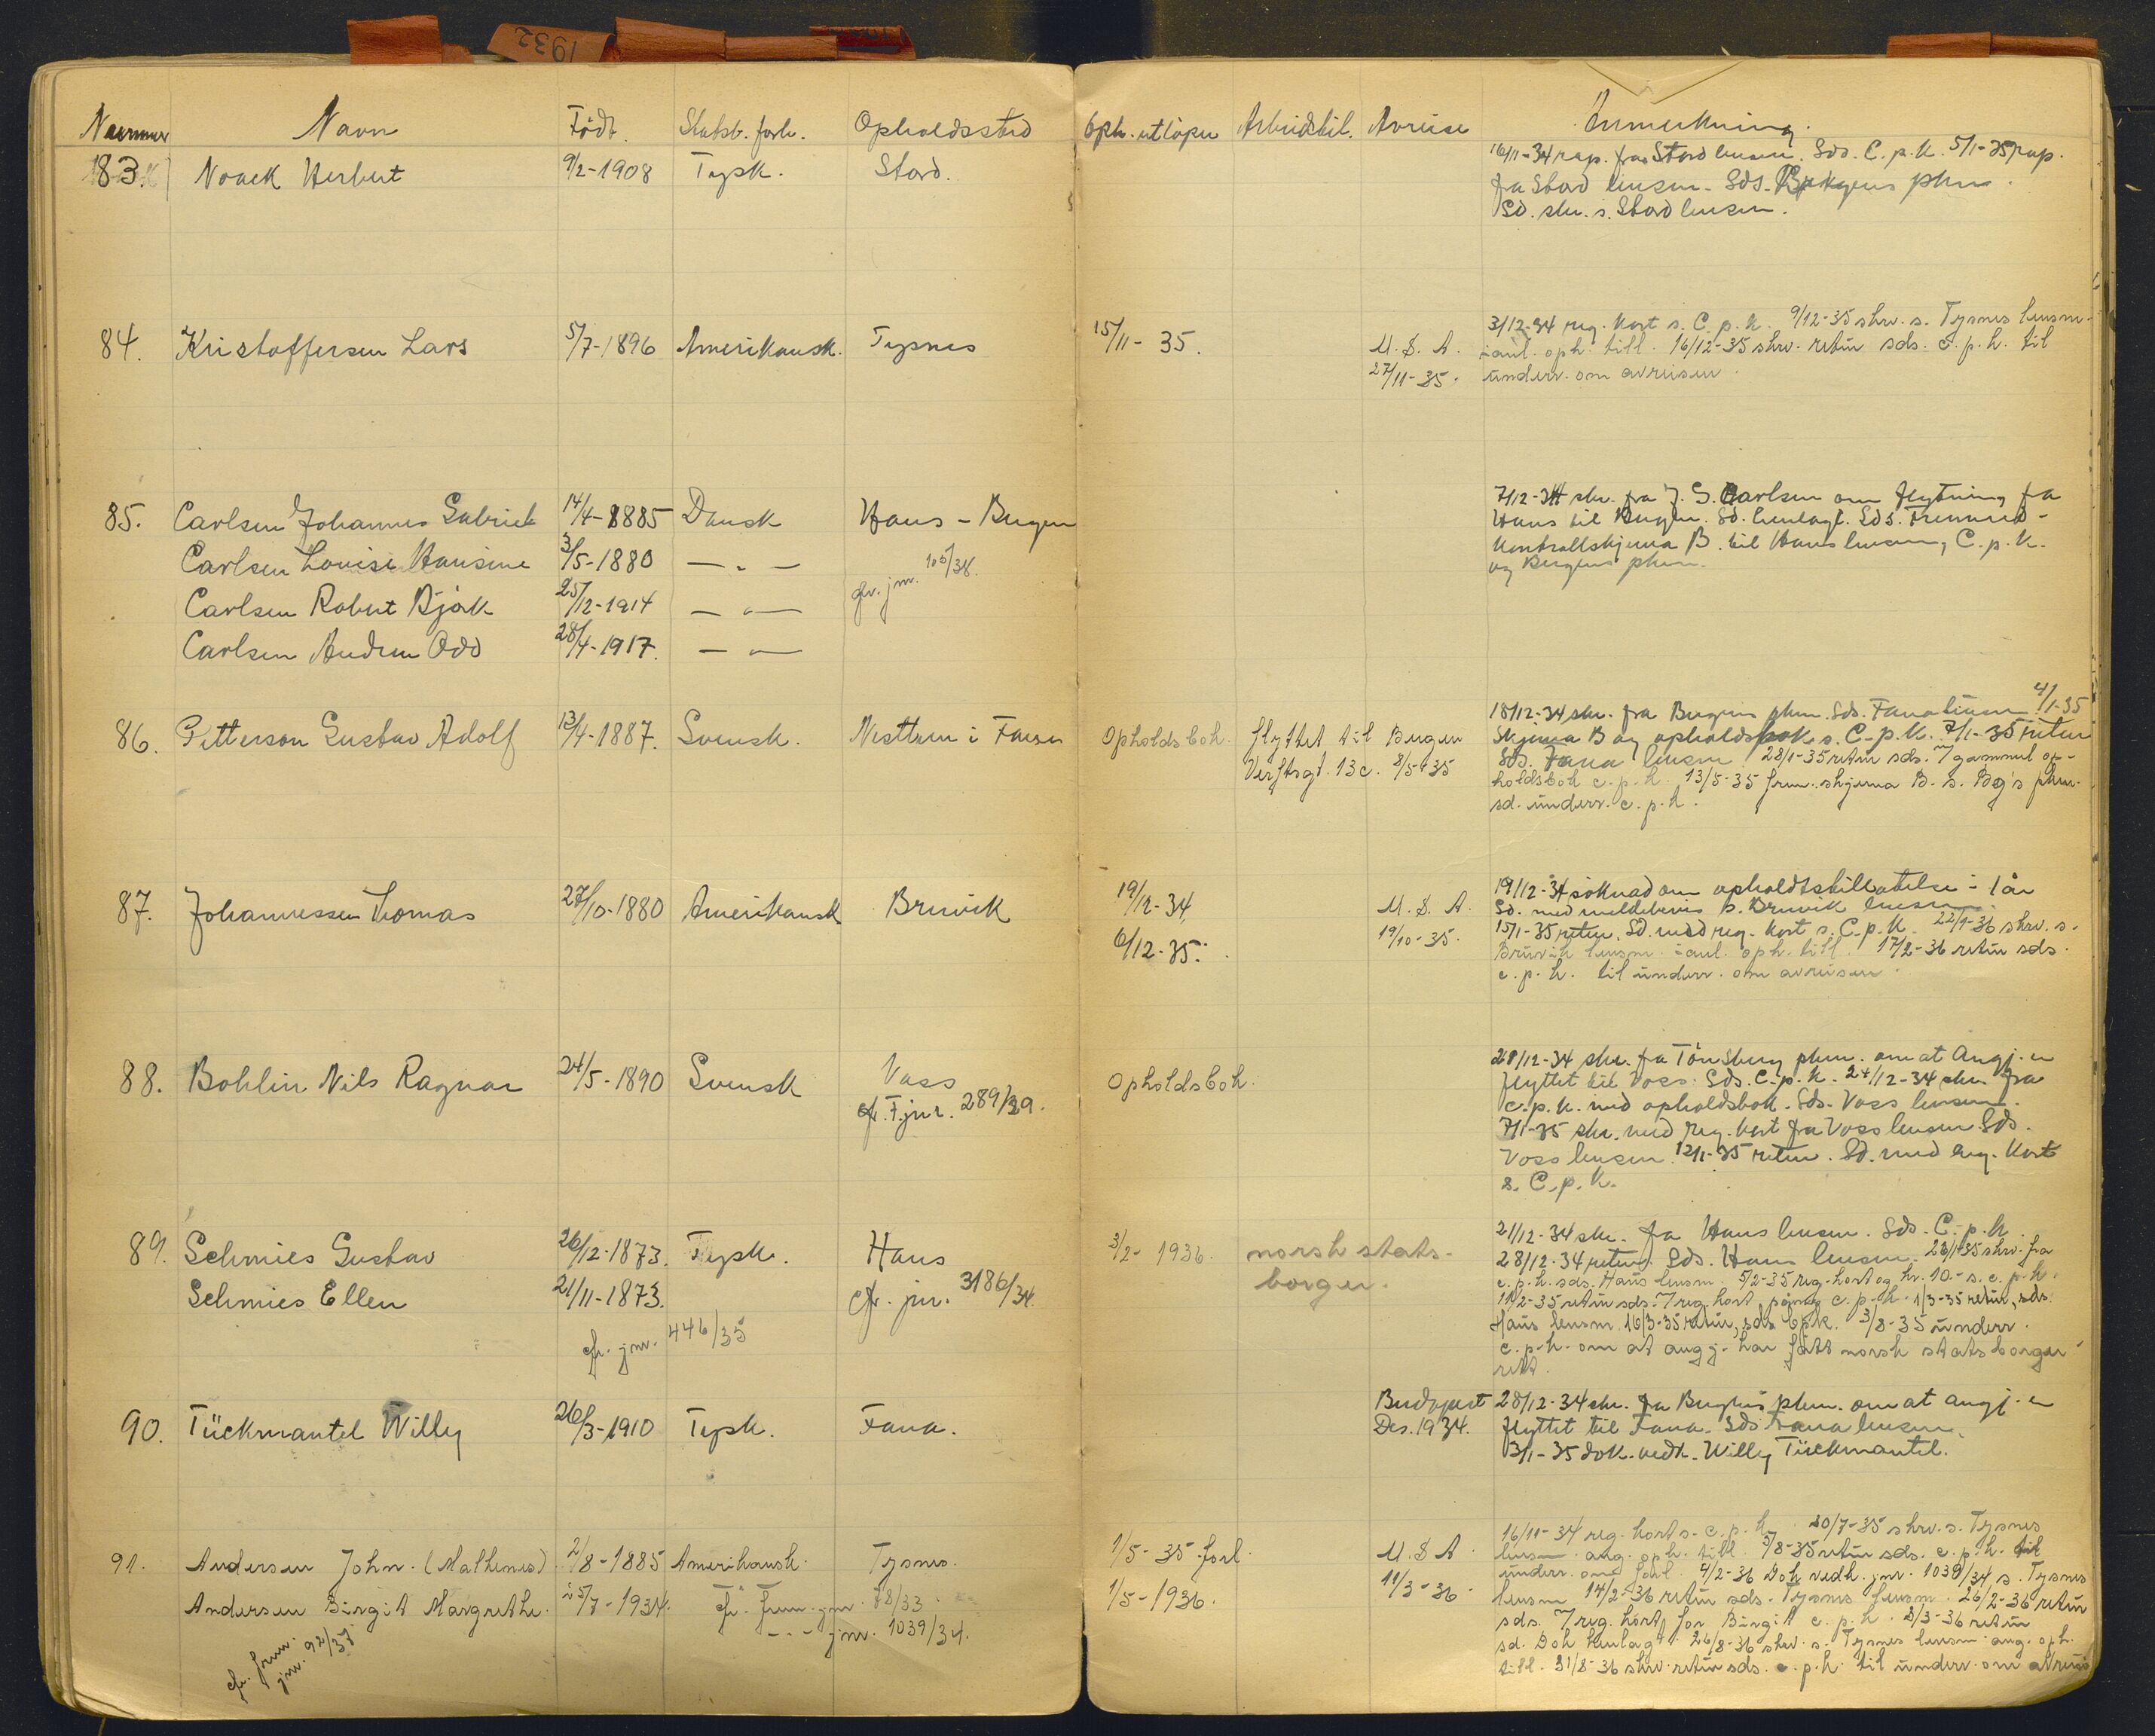 1932
Nummer Navn Født. Statsb. forh. Opholdssted Oph. utløper Arbeidstil. Avreise Anmerkning.
83. Noack Herbert 9/2-1908 Tysk. Stord. 16/11-34 rap. fra Stord lensm. Sds. C.p.k. 5/1-35 rap.
fra Stord lensm. Sds. Bergens pkm.
Sd. skr. s. Stord lensm.
84. Kristoffersen Lars 5/7-1896 Amerikansk. Tysnes 15/11-35. U.S.A. 27/11-35. 3/12-34 reg. kort s. C.p.k. 9/12-35 skrv. s. Tysnes lensm.
i anl. oph. till. 16/12-35 skrv. retur sds. c.p.k. til
underr. om avreisen.
85. Carlsen Johannes Gabriel 14/4-1885 Dansk Haus - Bergen 7/12-34 skr. fra J.G. Carlsen om flytning fra
Carlsen Louise Hansine 3/5-1880 — „ — cfr. jnr. 103/38. Haus til Bergen. Sd. henlagt. Sds. Fremmed-
Carlsen Robert Bjørk 25/12-1914 — „ — kontrollskjema B. til Haus lensm, C.p.k.
Carlsen Andrew Odd 28/4-1917. — „ — og Bergens pkm.
86. Pettersson Gustav Adolf 13/4-1887. Svensk. Nesttun i Fana Opholdsbok. flyttet til Bergen
Verftsgt. 13c. 8/5-35 18/12-34 skr. fra Bergens pkm. Sds. Fana lensm. 4/1-35
Skjema B og opholdsbok s. C.p.k. 7/1-35 retur
Sds. Fana lensm. 28/1-35 retur sds. 7 gammel op-
holdsbok c.p.k. 13/5-35 frem. skjema B. s. Bg's pkm.
sd. underr. c.p.k.
87. Johannessen Thomas 27/10-1880 Amerikansk Bruvik 19/12-34 U.S.A. 19/12-34 søknad om opholdstillatelse i 1 år
6/12-35. 19/10-35. Sd. med meldebevis s. Bruvik lensm.
15/1-35 retur. Sd. med reg. kort s. C.p.k. 22/1-36 skrv. s.
Bruvik lensm. i anl. oph. till. 17/2-36 retur sds.
c.p.k. til underr. om avreisen.
88. Bohlin Nils Ragnar 24/5-1890 Svensk Voss Opholdsbok.
cfr. F.jnr. 289/39. 28/12-34 skr. fra Tønsberg pkm. om at angj. er
flyttet til Voss. Sds. C.p.k. 24/12-34 skr. fra
C.p.k. med opholdsbok. Sds. Voss lensm.
7/1-35 skr. med reg. kort fra Voss lensm Sds.
Voss lensm. 12/1-35 retur. Sd. med reg. kort
s. C.p.k.
89. Schmies Gustav 26/12-1873. Tysk. Haus 3/2-1936. norsk stats-
borger.
Schmies Ellen 21/11-1873. cfr. jnr. 3186/34.
cfr. jnr. 446/35
21/12-34 skr. fra Haus lensm. Sds. C.p.k.
28/12-34 retur. Sds. Haus lensm. 23/1-35 skrv. fra
c.p.k. sds. Haus lensm. 5/2-35 reg. kort og kr. 10.- s. c.p.k.
11/2-35 retur sds. 7 reg. kort c.p.k. 1/3-35 retur, sds.
Haus lensm. 16/3-35 retur, sds. Cpk. 3/8-35 underr.
c.p.k. om at angj. har fått norsk statsborger
rett.
90. Tückmantel Willy 26/3-1910 Tysk. Fana. Budapest
Des. 1934. 28/12-34 skr. fra Bergens pkm. om at angj. er
flyttet til Fana. Sds Fana lensm.
3/1-35 dok. vedk. Willy Tückmantel.
91. Andersen John. (Mathenes) 2/8-1885 Amerikansk. Tysnes. 1/5-35. forl. U.S.A.
Andersen Birgit Margrethe. 25/7-1934. cfr. frem. jnr. 78/33 1/5-1936. 11/3-36
- - - jnr. 1039/34.
cfr. frem.
jnr. 92/37
16/11-34 reg. kort s. c.p.k. 30/7-35 skrv. s. Tysnes
lensm. ang. oph. till. 5/8-35 retur sds. c.p.k. til
underr. om forl. 4/2-36 Dok vedk. jnr. 1039/34 s. Tysnes
lensm. 14/2-36 retur sds. Tysnes lensm. 26/2-36 retur
sds. 7 reg. kort for Birgit c.p.k. 3/3-36 retur
sd. Dok henlagt. 26/8-36 skrv. s. Tysnes lensm. ang. oph.
till. 31/8-36 skrv. retur sds. c.p.k. til underr. om avreise